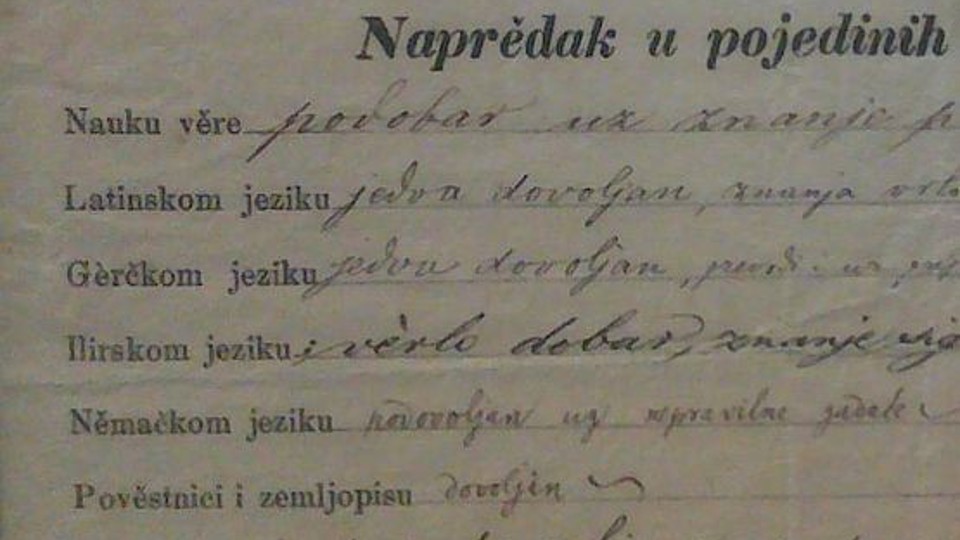 Naprědak u pojedinih
Nauku věre podobar uz znanje
Latinskom jeziku jedva dovoljan, znanja
Gèrčkom jeziku jedva dovoljan,
Ilirskom jeziku vèrlo dobar, znanje
Němačkom jeziku nedovoljan uz nepravilne zadatke
Pověstnici i zemljopisu dovoljan